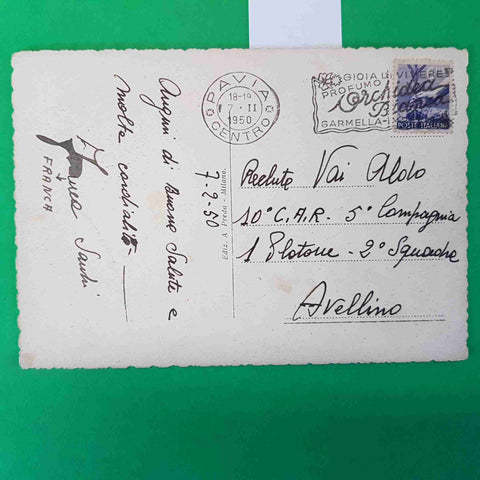 Auguri di Buona Salute e
molta cordialità
Franca Sandri
FRANCA
7-2-50
Ediz. V. Preda - Milano.
PAVIA
18-19
7-II
1950
CENTRO
GIOIA DI VIVERE
PROFUMO
Orchidea
Bianca
GARMELLA-
POSTE ITALIANE
Recluta Vai Aldo
10° C.A.R. 5° Compagnia
1 Plotone - 2° Squadra
Avellino